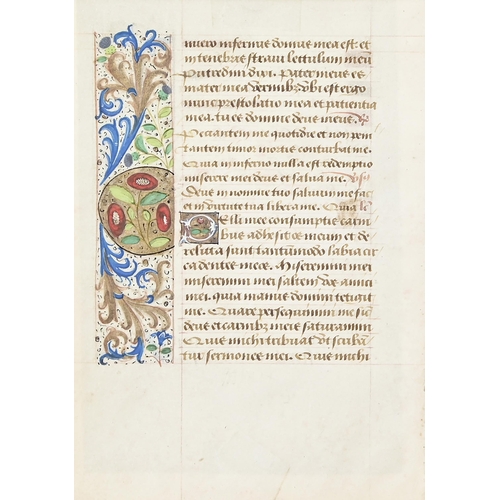 nuero infernus domus mea est et
in tenebris stravi lectulum meu
Putredini dixi. Pater meus es
mater mea vermibz. Ubi est ergo
nunc prestolatio mea et patientia
mea. tu es domine deus meus.
Peccantem me quotidie et non peni
tantem timor mortis conturbat me.
Quia in inferno nulla est redemptio
miserere mei deus et salva me.
Deus in nomine tuo salvum me fac
et in virtute tua libera me. Quia
Pelli mee consumptis carni
bus adhesit os meum et de
relicta sunt tantumodo labia cir
ca dentes meos. Miseremini mei
miseremini mei saltem vos amici
mei. quia manus domini tetigit
me. Quare persequimini me sic
deus et carnibz meis saturamini
Quis michi tribuat ut scriban
tur sermones mei. Quis michi